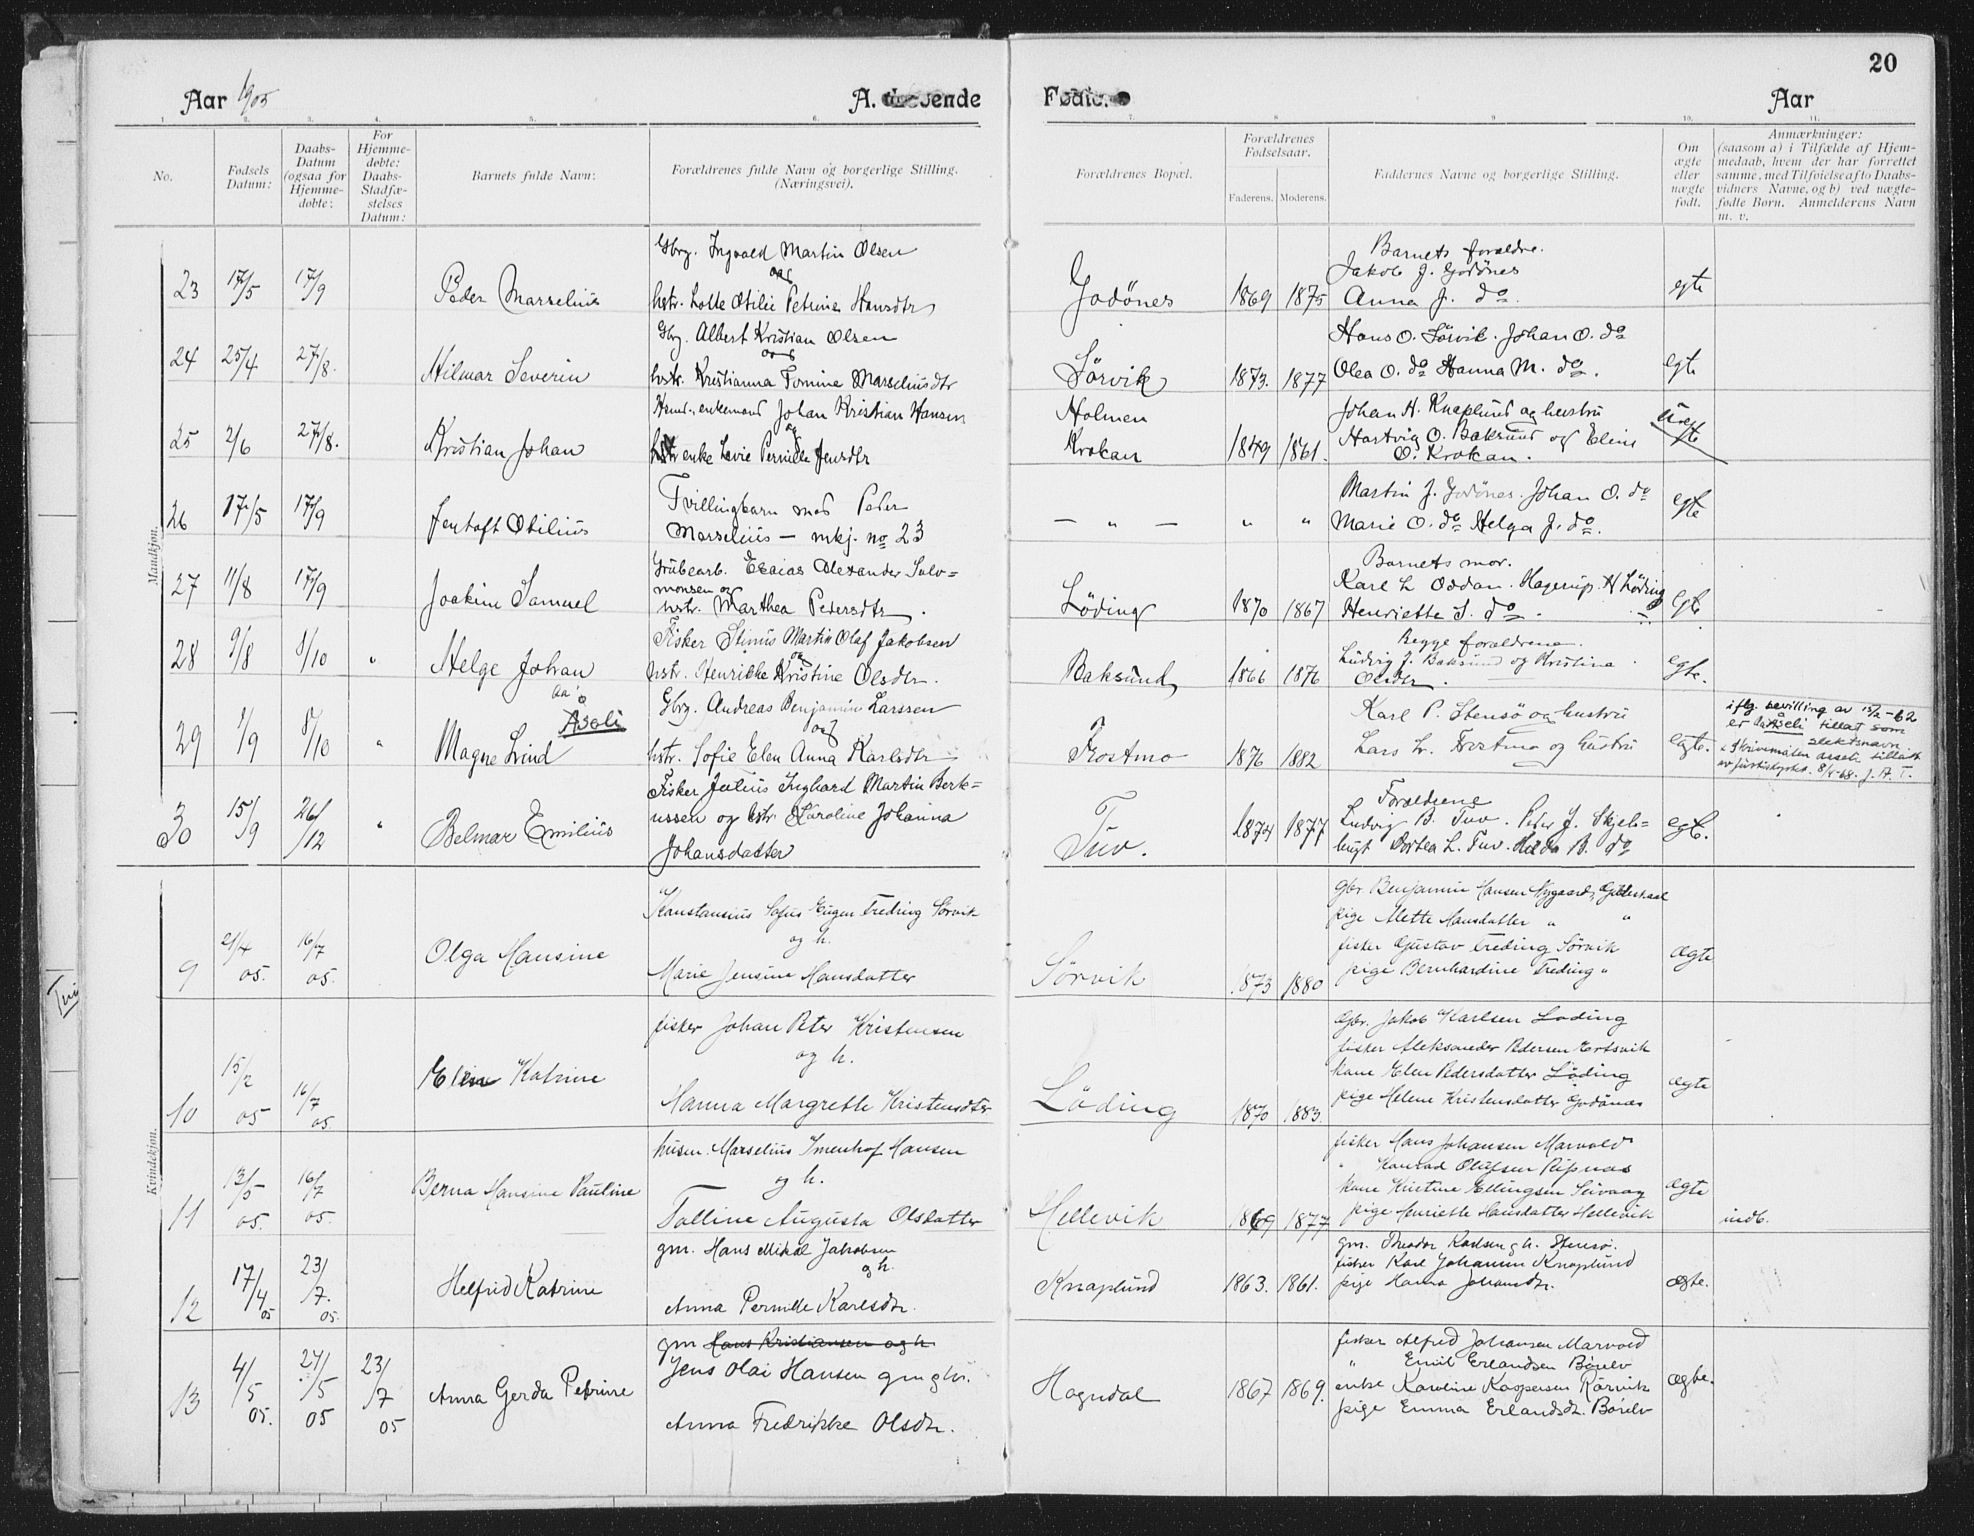 20
Aar 1905
A. Levende
Fødte.
Aar
1. 2. 3. 4. 5. 6. 7. 8. 9. 10. 11.
No.
Fødsels Datum:
Daabs-Datum (ogsaa for Hjemmedøbte:
For Hjemmedøbte: Daabs-Stadfæstelses Datum:
Barnets fulde Navn:
Forældrenes fulde Navn og borgerlige Stilling. (Næringsvei).
Forældrenes Bopæl.
Forældrenes Fødselsaar.
Faderens. Moderens.
Faddernes Navne og borgerlige Stilling.
Om ægte eller uægte født.
Anmærkninger:
(saasom a) i Tilfælde af Hjem-
medaab, hvem der har forrettet
samme, med Tilføielse af to Daabs-
vidners Navne, og b) ved uægte-
fødte Børn. Anmelderens Navn
m. v.
Mandkjøn.
23 17/5 17/9 Peder Marselius
Gbrg. Ingvald Martin Olsen
og
hstr. Lotte Otilie Petrine Hansdtr
Godönes 1869 1875
Barnets forældre.
Jakob J. Godönes
Anna J. do.
egte
24 25/4 27/8. Hilmar Severin
Gbrg. Albert Kristian Olsen
og
hstr. Kristianna Tomine Marseliusdtr
Sörvik 1873. 1877
Hans O. Sörvik. Johan O. do
Olea O. do Hanna M. do.
egte
25 2/6 27/8. Kristian Johan
enkemand Johan Kristian Hansen
og
enke Levie Pernille Jensdtr
Holmen
Krokan 1849 1861.
Johan H. Knaplund og hustru
Hartvig O. Baksund og Eline
O. Krokan.
Uegte
26 17/5 17/9 Jentoft Otilius
Tvillingbarn med Peder
Marselius — mkj. no 23
— " — " "
Martin J. Godönes. Johan O. do
Marie O. do Helga J. do.
egte
27 11/8 17/9 Joakim Samuel
Grubearb. Esaias Alexander Salo=
monsen og
hstr. Marthea Pedersdtr.
Löding 1870 1867
Barnets mor.
Karl L. Oddan. Hagerup. H Löding
Henriette S. do.
egte
28 9/8 8/10 " Helge Johan
Fisker Stinus Martin Olaf Jakobsen
og
hstr. Henrikke Kristine Olsdtr.
Baksund 1866 1876
Begge forældrene.
Ludvig J. Baksund og Kristina
Olsdtr.
egte.
29 1/9 8/10 " Magne Lind
Aaseli
Gbrg. Andreas Benjamin Larssen
og
hstr. Sofie Elen Anna Karlsdtr
Trostmo 1876 1882
Karl P. Stensö og hustru
Lars L. Trostmo og hustru
egte.
iflg. bevilling av 15/2-62
er Åseli tillatt som
slektsnavn
Skrivemåten Aaseli tillatt
av justisdeptet. 8/5-68. J. A. T.
30 15/9 26/12 " Belmar Emilius
Fisker Julius Inghard Martin Bert=
ussen og hstr. Karoline Johanna
Johansdatter
Tuv. 1874 1877
Forældrene
Ludvig B. Tuv. Peter J. Skjels=
bugt Dortea L. Tuv. Hilda B. do
egte.
Kvindekjøn.
9 21/4 05. 16/7 05. Olga Hansine
Konstansius Sofus Eugen Freding Sörvik
og h.
Marie Jensine Hansdatter
Sörvik 1873 1880
gbr Benjamin Hansen Nygaard, Gildeskaal
pige Alette Hansdatter " "
fisker Gustav Freding Sörvik
pige Bernhardine Freding "
ægte
10 15/2 05 16/7 05. Eline Katrine
fisker Johan Peter Kristensen
og h.
Hanna Margrethe Kristensdtr
Löding 1870 1883.
Gbr. Jakob Karlsen Löding
fisker Aleksander Pedersen Ertsvik
kone Elen Pedersdatter Löding
pige Helene Kristensdatter Godönes
ægte
11 13/5 05. 16/7 05. Berna Hansine Pauline
husm. Marselius Imenhof Hansen
og h.
Talline Augusta Olsdatter
Hellevik 1869 1877
fisker Hans Johansen Marvold
" Konrad Olufsen Ripnæs
kone Kristine Ellingsen Seivaag
pige Henriette Hansdatter Hellevik
ægte
indb.
12 17/4 05 23/7. 05. Helfrid Katrine
gm. Hans Mikal Jakobsen
og h.
Anna Pernille Karlsdtr.
Knaplund 1863. 1861.
gm. Theodor Karlsen g h. Stensö.
fisker Karl Johansen Knaplund
pige Hanna Johansdtr.
ægte.
13 4/5 05. 24/5 05 23/7 05 Anna Gerda Petrine
gm Hans Kristiansen og h
Jens Olai Hansen gm g h.
Anna Fredrikke Olsdtr.
Hogndal 1867 1869.
fisker Alfred Johansen Marvold
" Emil Erlandsen Börelv
enke Karoline Kaspersen Rörvik
pige Emma Erlandsdtr. Börelv
ægte.